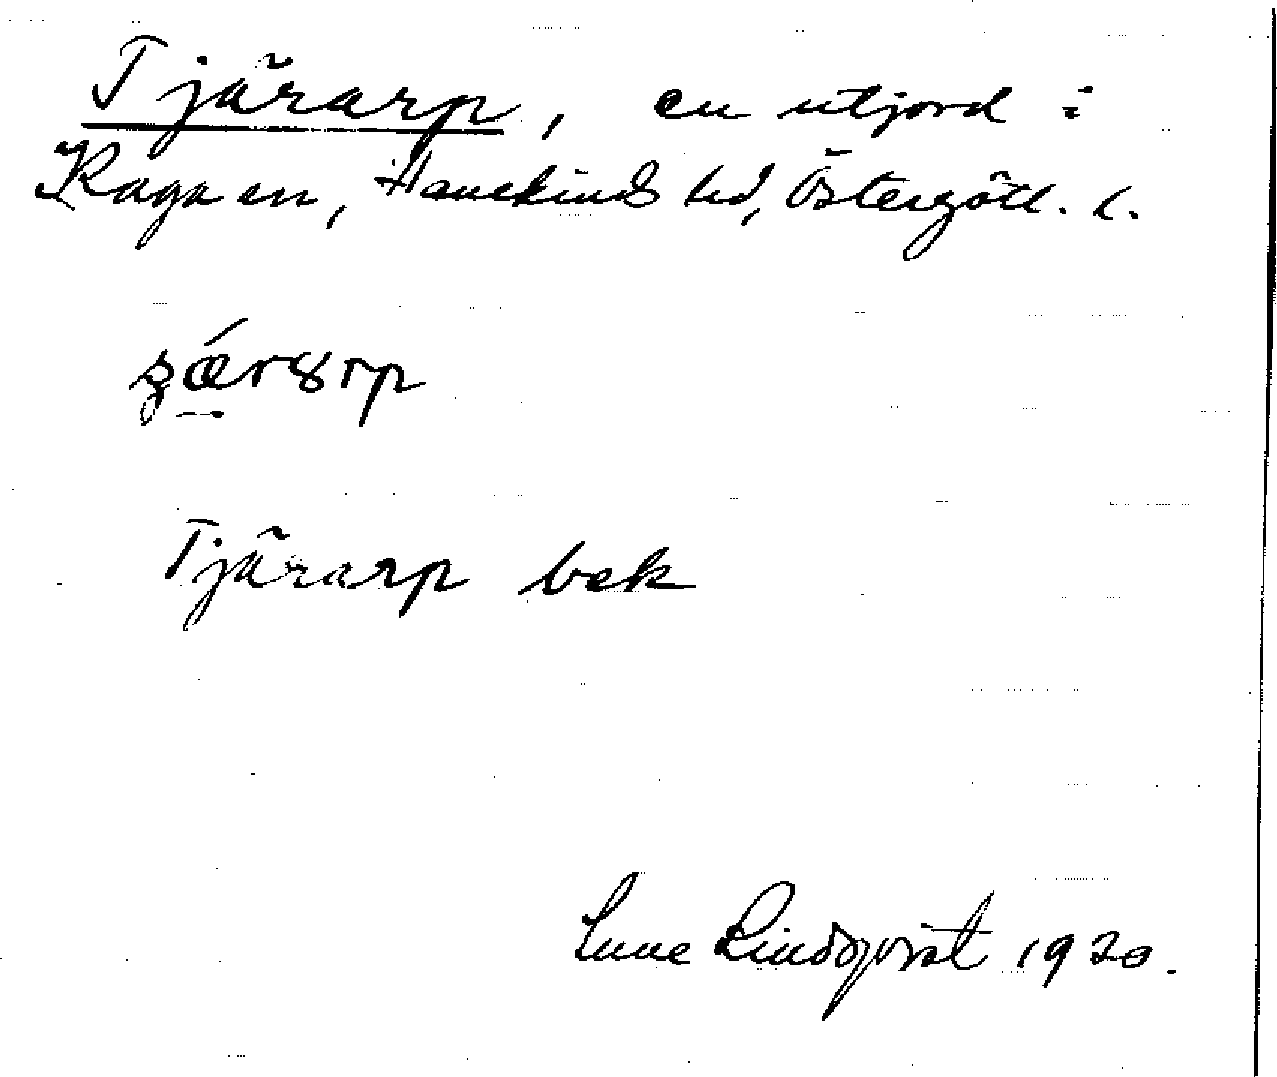 Tjärarp, en utjord i
Kaga sn, Hanekinds hd, Östergötl. l.
Tjärarp bek
Sune Lindqvist 1920.